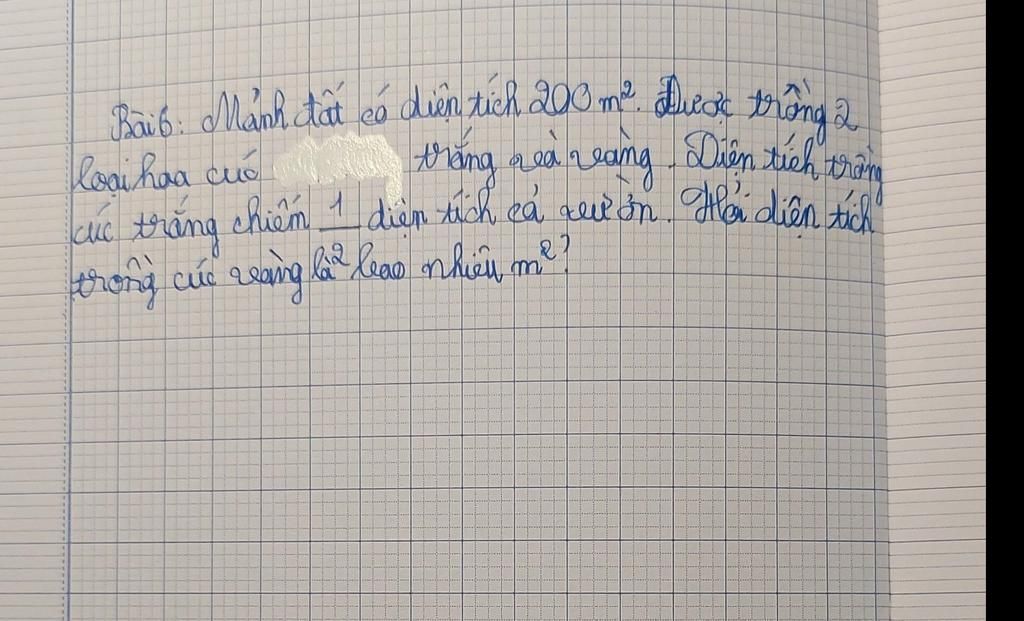 Bài 6: Mảnh đất có diện tích 200 m². Được trồng 2
loại hoa cúc trắng và vàng. Diện tích trồng
cúc trắng chiếm 1/2 diện tích cả vườn. Hỏi diện tích
trồng cúc vàng là bao nhiêu m²?